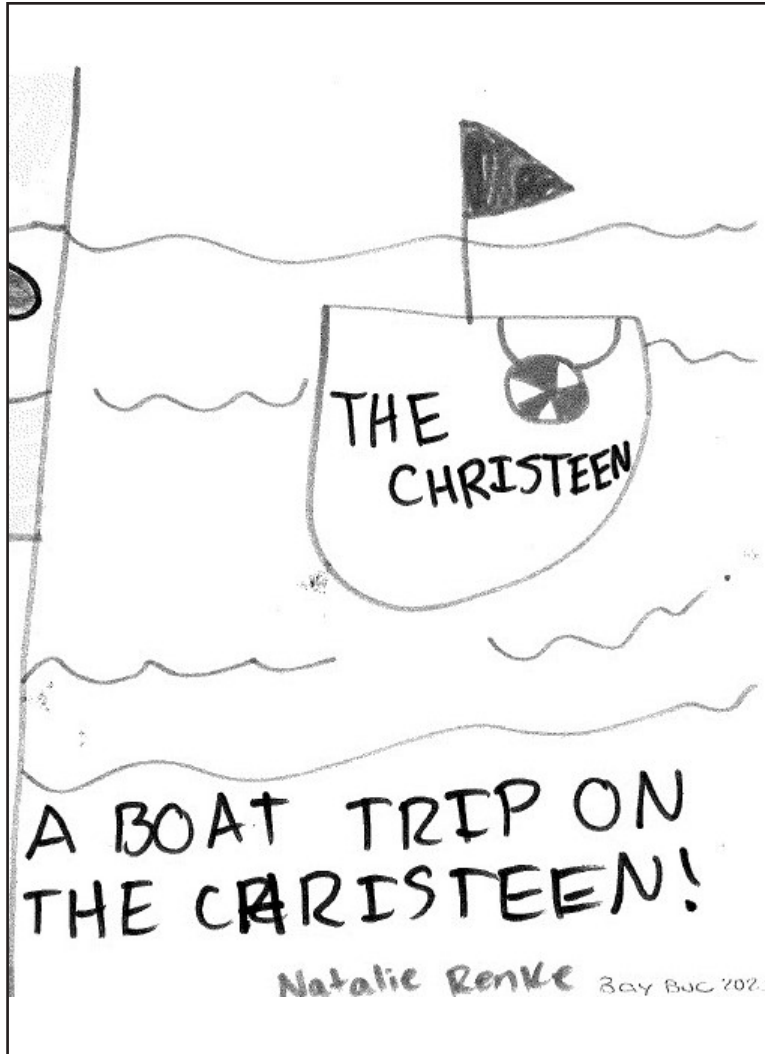 THE
CHRISTEEN
A BOAT TRIP ON
THE CHRISTEEN!
Natalie Renke Bay Buc 202